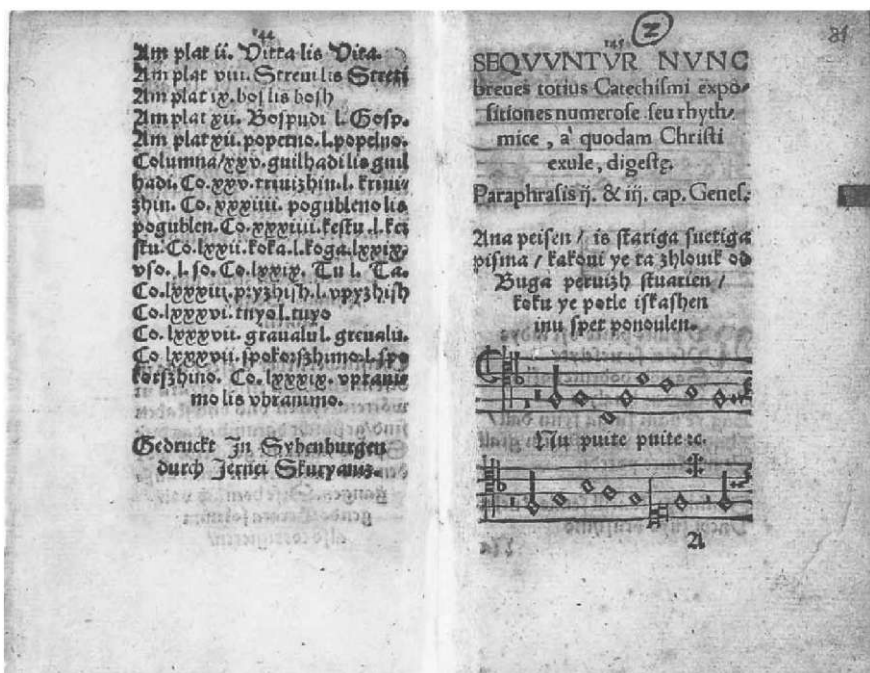 144
Am plat ii. Virra lis Vira.
Am plat viii. Streni lis Streti
Am plat ix. bos lis bosh
Am plat xii. Bospudi l. Gosp.
Am plat xii. poperno. l. popelno.
Columna/xxv. guilhadi lis guil
hadi. Co. xxv. triuizhin. l. kriui-
zhin. Co. xxxiiii. pogubleno lis
pogublen. Co. xxxiiii. kestu. l. kri
stu. Co. lxxii. koka. l. koga. lxxix.
vso. l. so. Co. lxxix. Tu l. Ta.
Co. lxxxiii. pryzhish. l. vpyzhish
Co. lxxxvi. tnyo l. tuyo
Co. lxxxvii. graualu l. greualu.
Co lxxxvii. spokorszhimo. l. spo
korszhino. Co. lxxxix. vpranie
mo lis vbranimo.
Gedruckt In Sybenburgen
durch Jernei Skuryaniz.
145
2
81
SEQVVNTVR NVNC
breues totius Catechismi expo-
sitiones numerose seu rhyth-
mice, a' quodam Christi
exule, digestę.
Paraphrasis ij. & iij. cap. Genes.
Ana peisen / is stariga suetiga
pisma / kakoui ye ta zhlouik od
Buga peruizh stuarien /
koku ye potle iskashen
inu spet ponoulen.
Nu puite puite ꝛc.
A